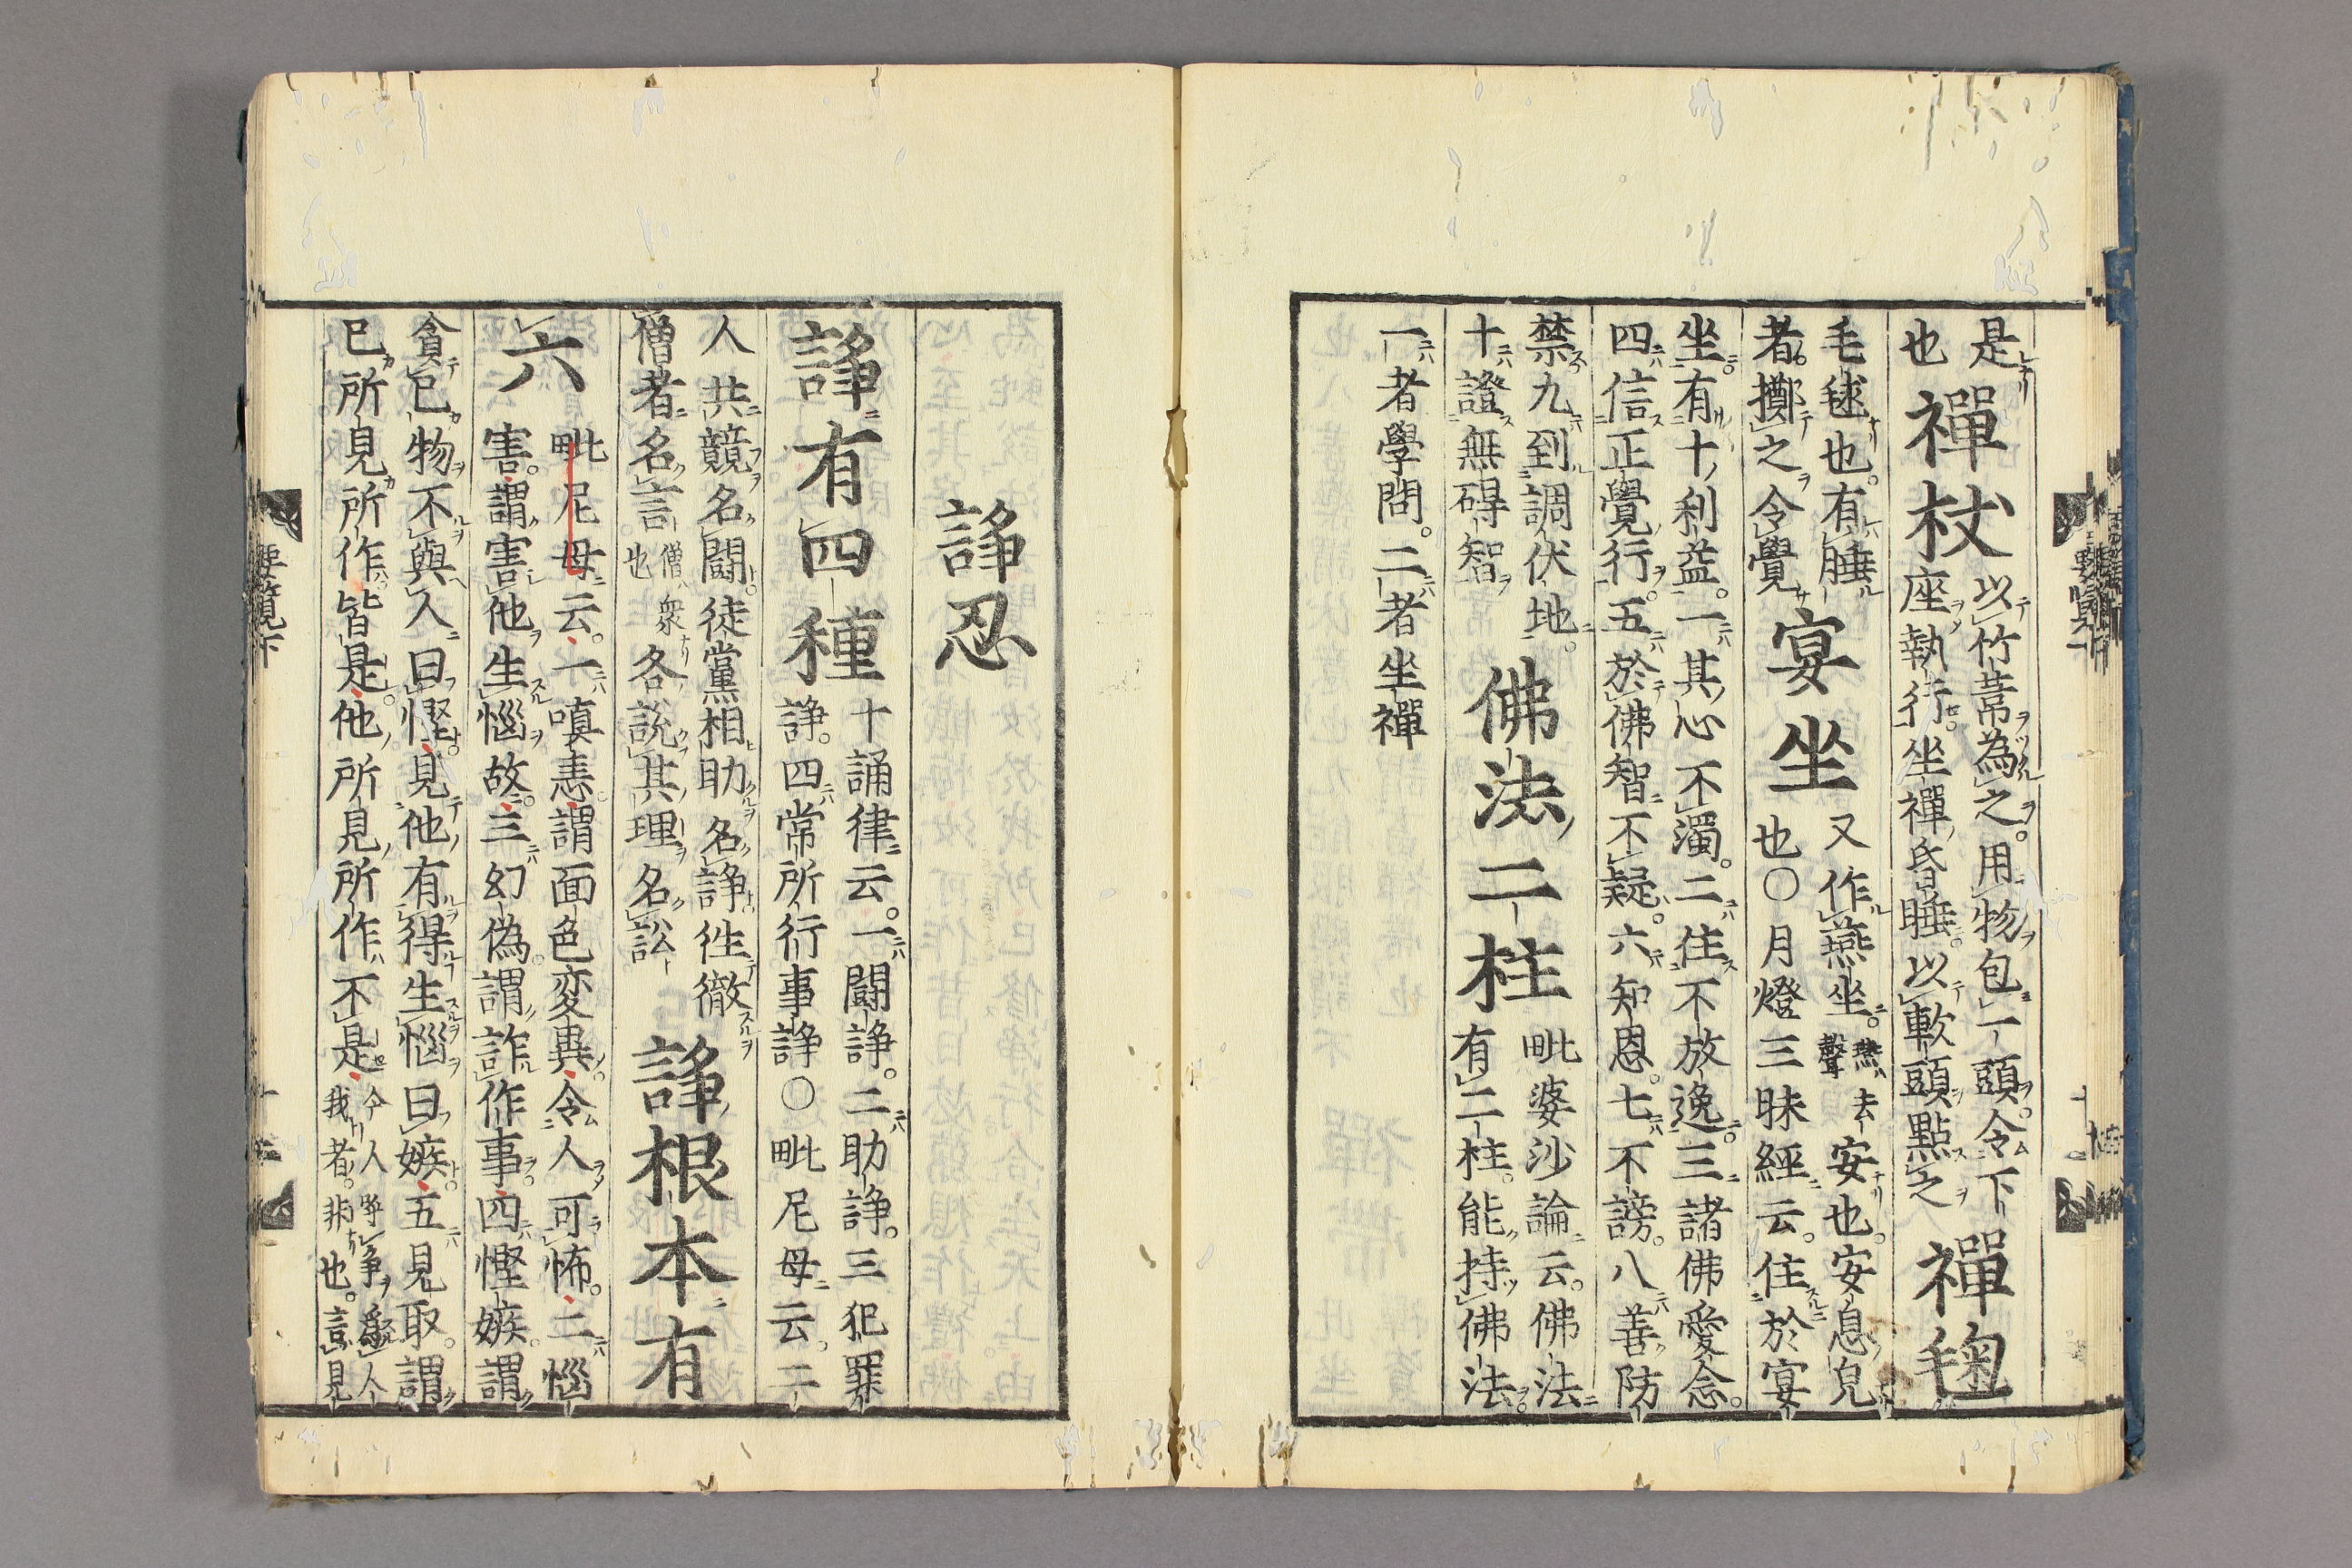 是
也
禪杖
以竹葦為之。用物包一頭。令下
座執行。坐禪昏睡。以軟頭點之
禪毱
毛毬也。有睡
者。擲之令覺
宴坐
又作燕坐。燕去聲安也。安息皃
也○月燈三昧經云。住於宴
坐有十利益。一其心不濁。二住不放逸。三諸佛愛念。
四信正覺行。五於佛智不疑。六知恩。七不謗。八善防
禁九到調伏地。
十證無碍智
佛法二柱
毗婆沙論云。佛法
有二柱。能持佛法。
一者學問。二者坐禪
諍忍
諍有四種
十誦律云。一鬪諍。二助諍。三犯罪
諍。四常所行事諍○毗尼母云。二
人共競名鬪。徒黨相助名諍。徃徹
僧者名言僧衆也各説其理名訟
諍根本有
六
毗尼母云。一嗔恚。謂面色変異。令人可怖。二惱
害。謂害他生惱故。三幻偽。謂詐作事。四慳嫉。謂
貪已物不與人曰慳。見他有得生惱曰嫉。五見取。謂
已所見所作。皆是。他所見所作不是。今人爭爲人
我者。非也。言見
要覽下